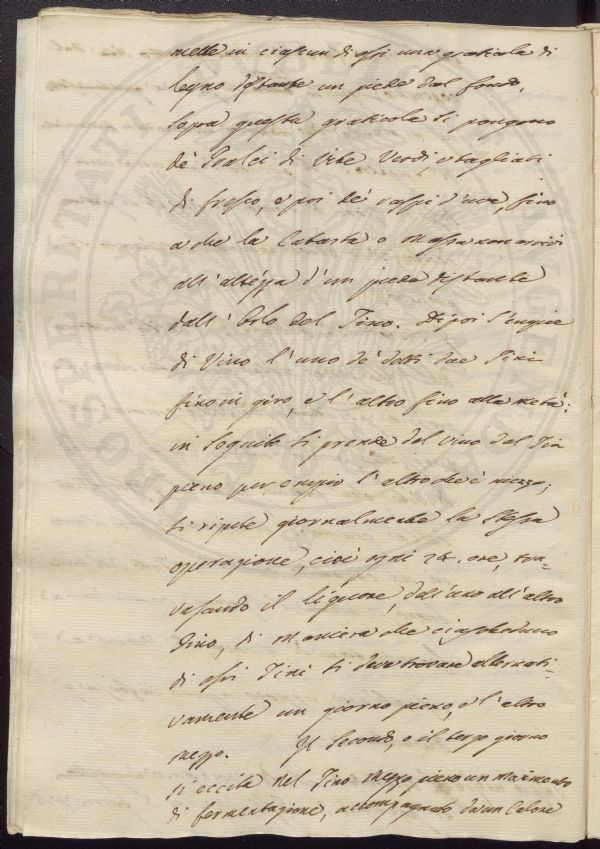 mette in ciascun di essi una graticola di
legno distante un piede dal fondo,
sopra questa graticola si pongono
de' Tralci di Vite Verdi, e tagliati
di fresco, e poi de' raspi d'uva, fino
a che la Catasta o Massa non arrivi
all'altezza d'un piede distante
dall'Orlo del Tino. Dipoi s'empie
di Vino l'uno de' detti due Tini
fino in giro, e l'altro fino alla metà:
in seguito si prende del vino del Tin
pieno per empir l'altro che è mezzo;
si ripete giornalmente la stessa
operazione, cioè ogni 24. ore, tra=
vasando il liquore, dall'uno all'altro
Tino, di maniera che ciascheduno
di essi Tini si deve trovare alternati=
vamente un giorno pieno, e l'altro
mezzo. Il secondo, o il terzo giorno
s'eccita nel Tino mezzo pieno un movimento
di fermentazione, accompagnato da un Calore